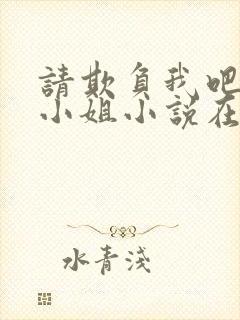 請欺負我吧
小姐小說在
水青淺